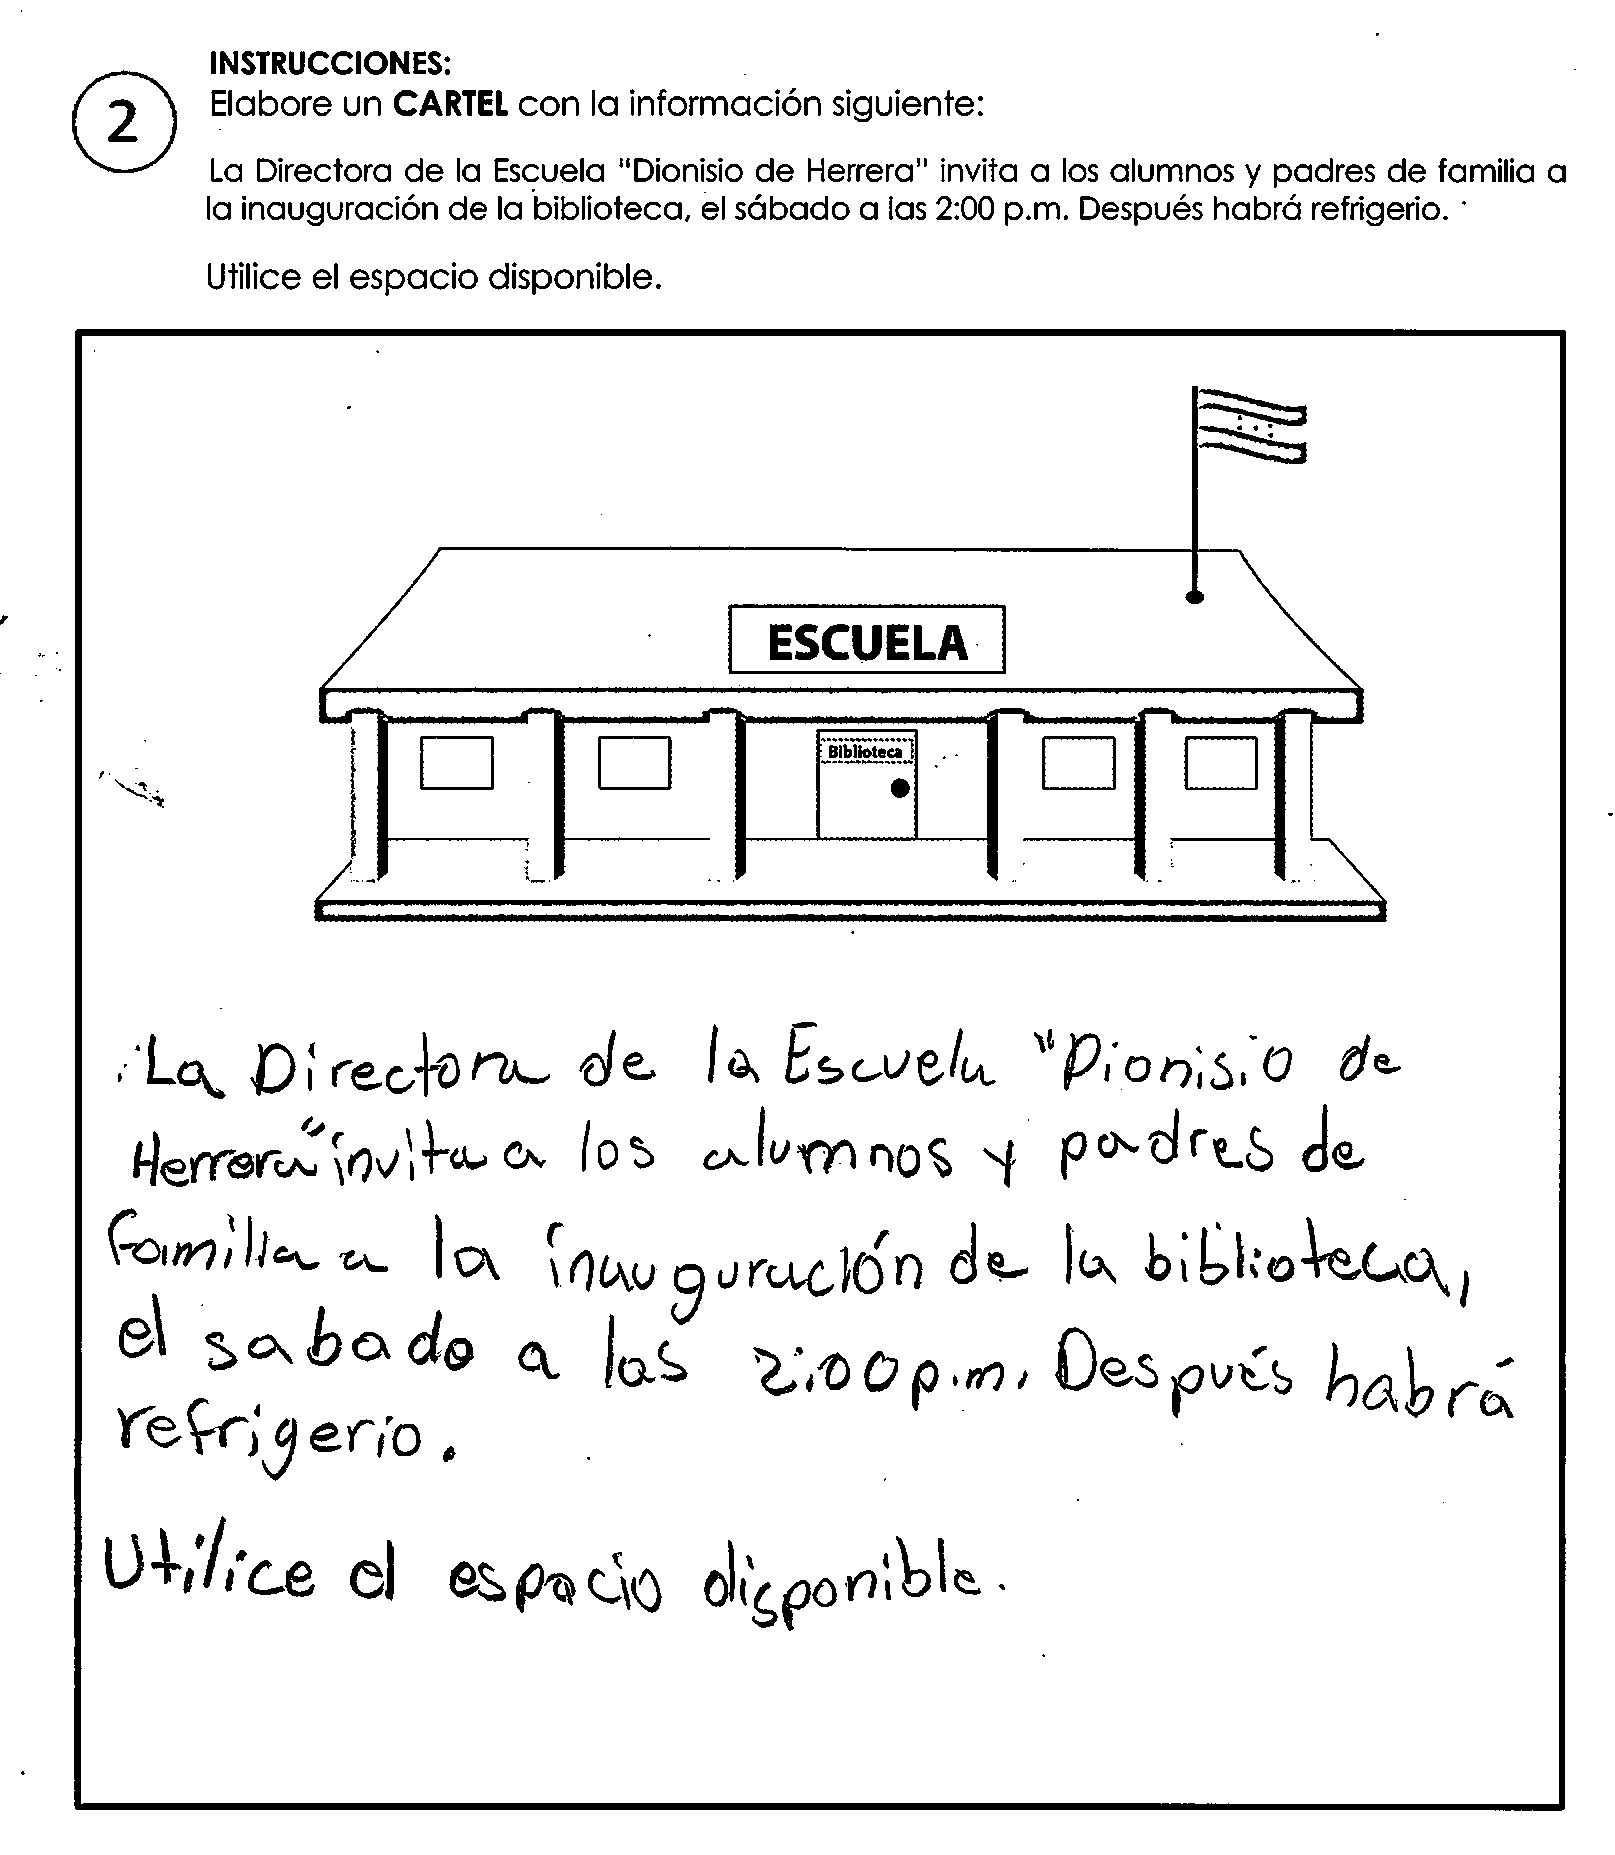 INSTRUCCIONES:
2
Elabore un CARTEL con la información siguiente:
La Directora de la Escuela "Dionisio de Herrera" invita a los alumnos y padres de familia a
la inauguración de la biblioteca, el sábado a las 2:00 p.m. Después habrá refrigerio.
Utilice el espacio disponible.
ESCUELA
Biblioteca
La Directora de la Escuela "Dionisio de
Herrera" invita a los alumnos y padres de
familia a la inauguración de la biblioteca,
el sabado a las 2:00 p.m. Después habrá
refrigerio.
Utilice el espacio disponible.